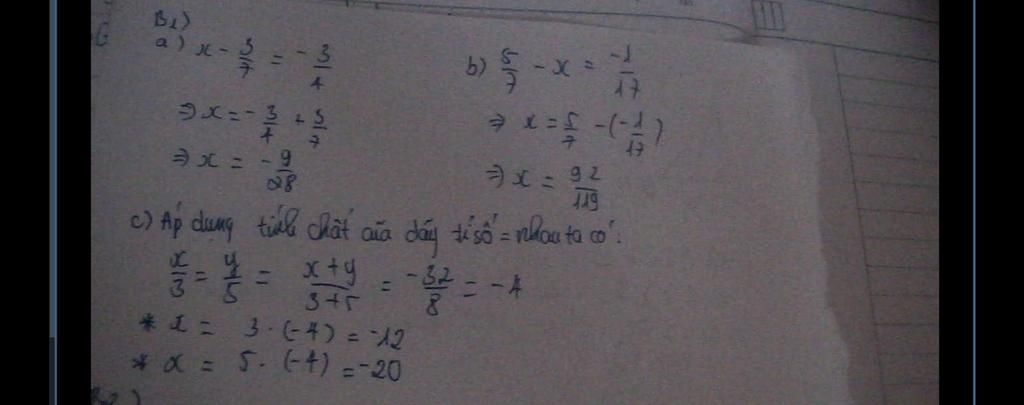 B1)
a) x - 3/7 = -3/4
=> x = -3/4 + 3/7
=> x = -9/28
b) 5/7 - x = -1/17
=> x = 5/7 - (-1/17)
=> x = 92/119
c) Áp dụng tính chất của dãy tỉ số = nhau ta có:
x/3 = y/5 = x+y/3+5 = -32/8 = -4
* x = 3 . (-4) = -12
* x = 5 . (-4) = -20